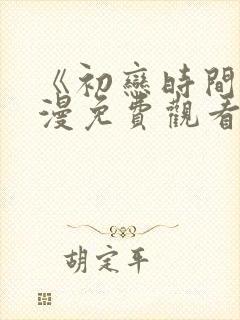 《初戀時間
漫免費觀看
胡定平